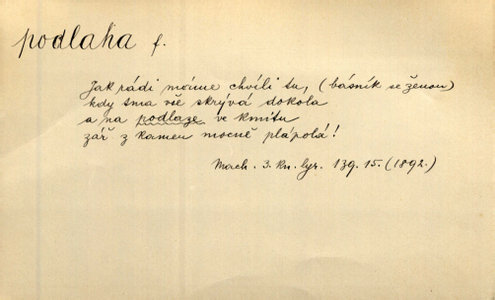 podlaha f.
Jak rádi máme chvíli tu, (básník se ženou)
kdy tma vše skrývá dokola
a na podlaze ve kmitu
zář z kamen mocně plápolá!
Mach. 3. kn. lyr. 139. 15. (1892.)